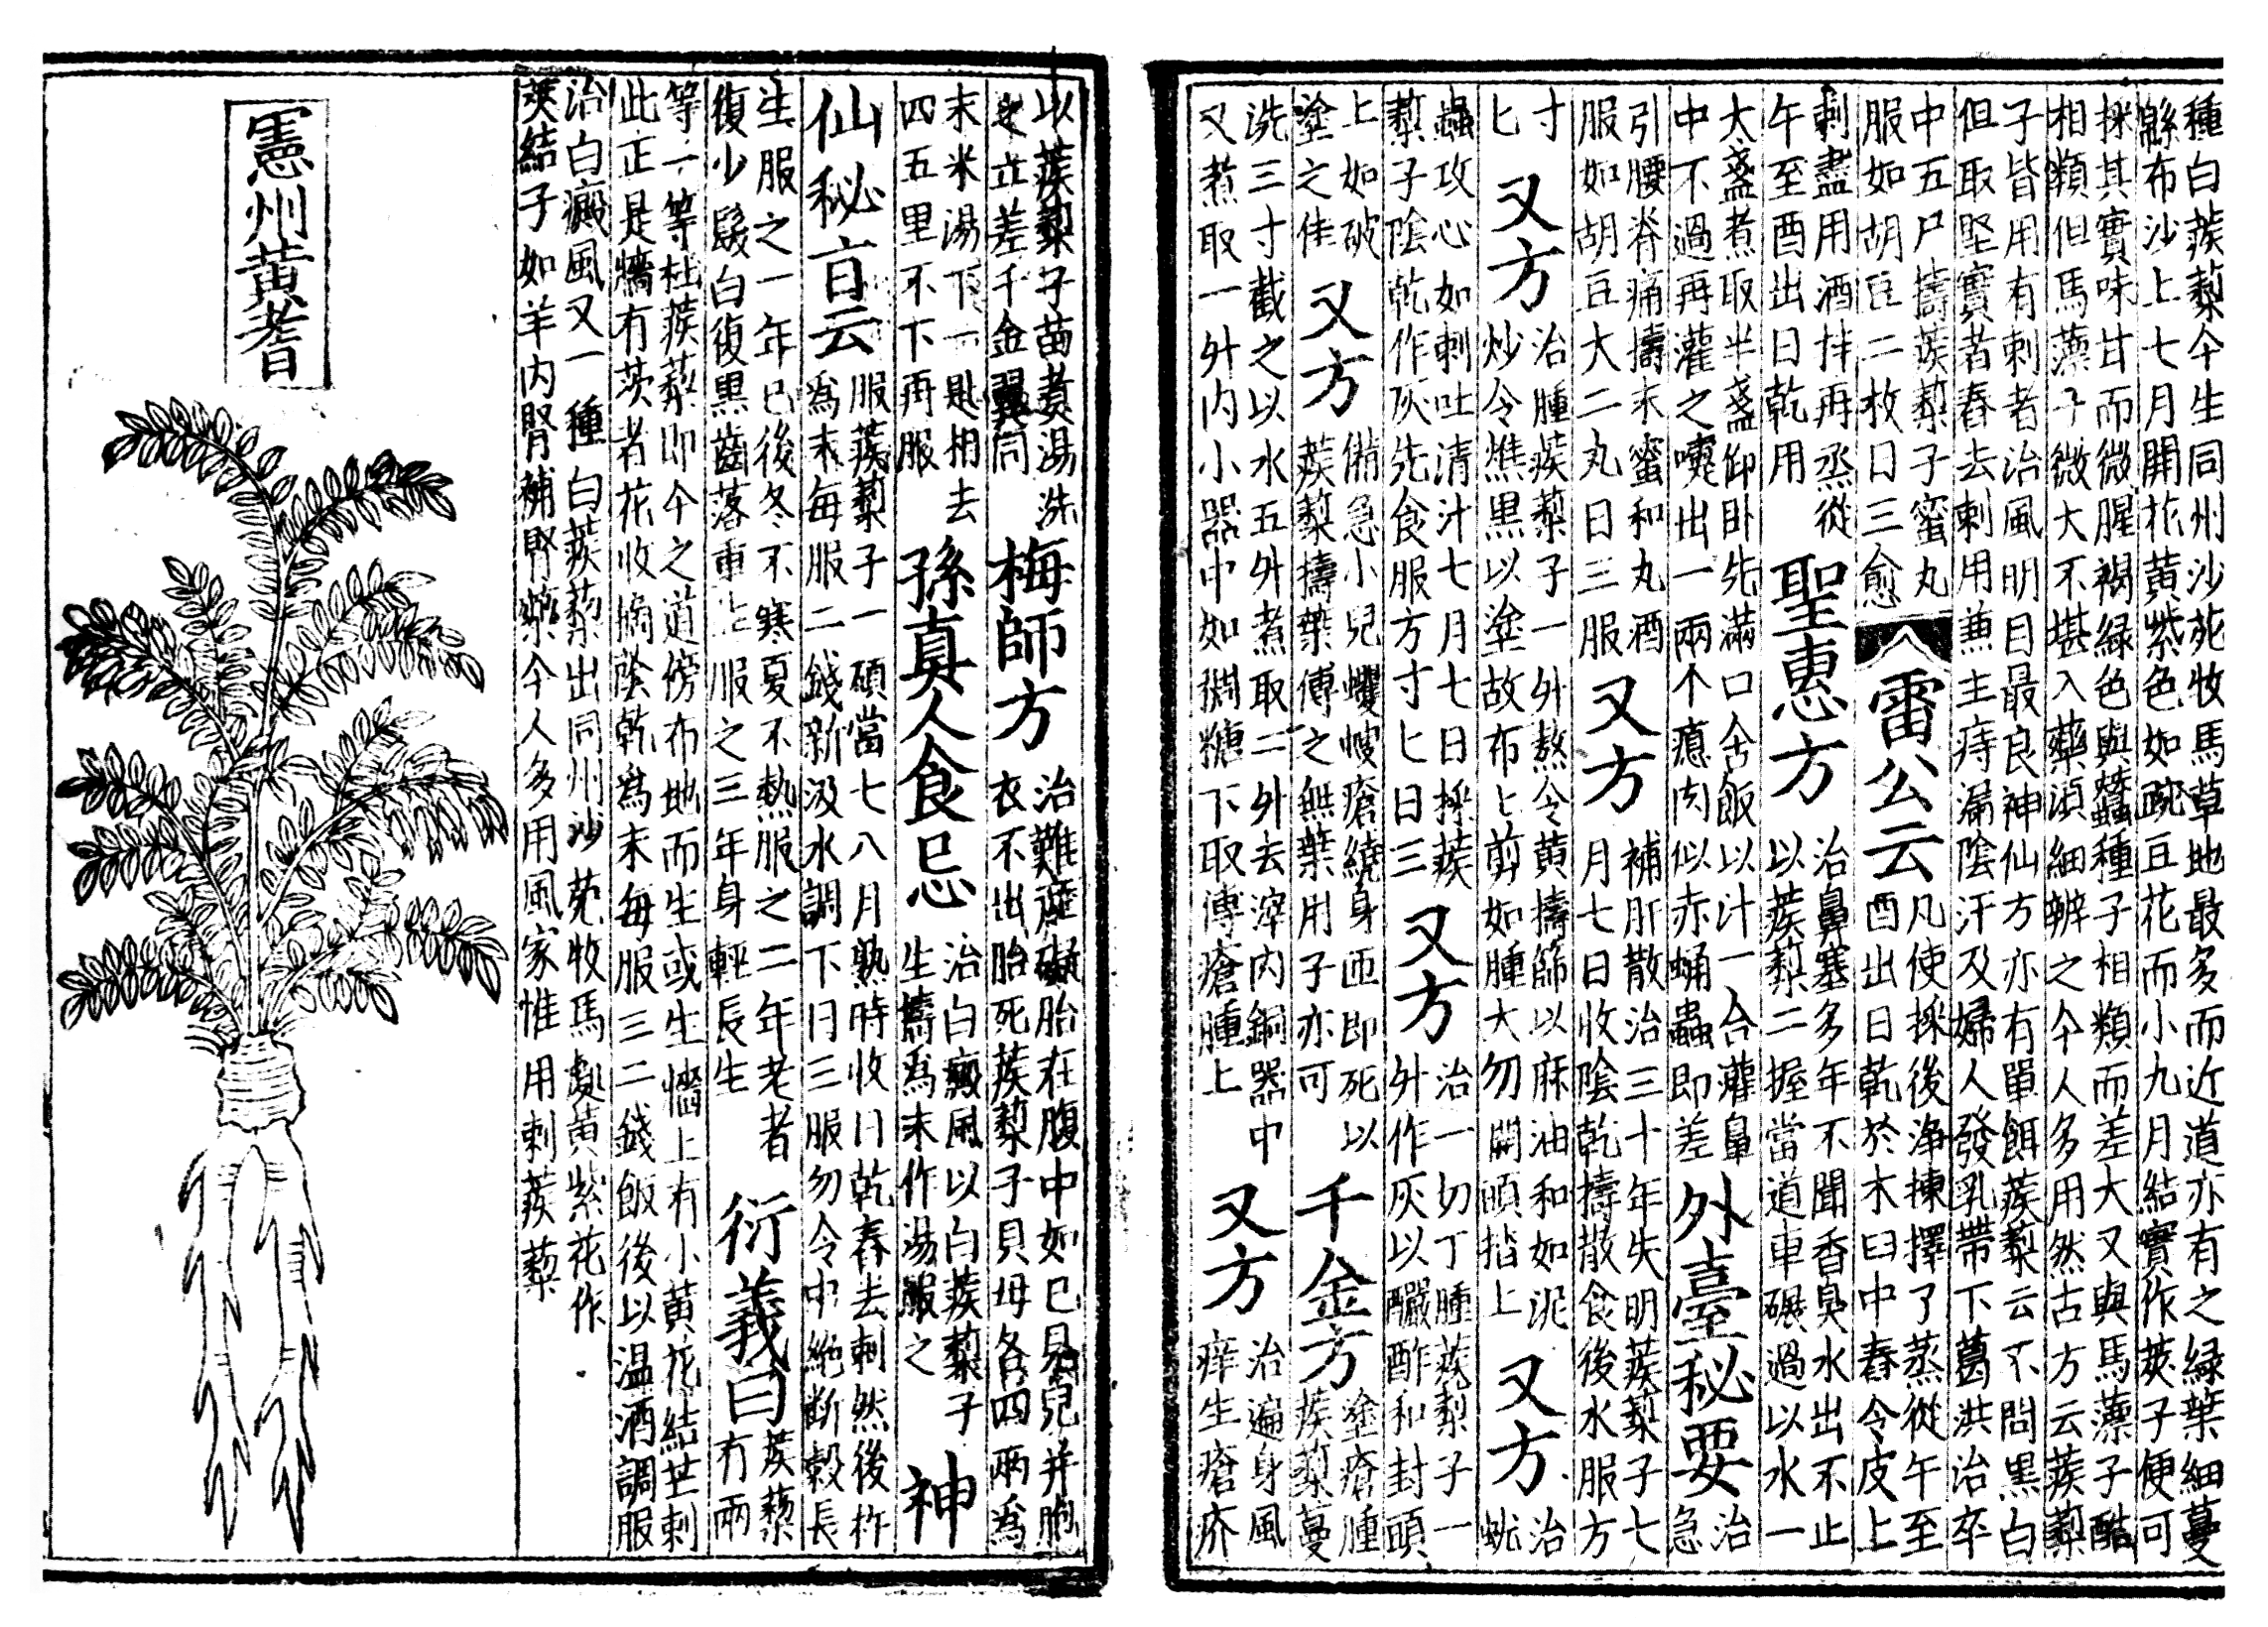 種白蒺䔧今生同州沙苑牧馬草地最多而近道亦有之緑葉細蔓
緜布沙上七月開花黃紫色如豌豆花而小九月結實作莢子便可
採其實味甘而微腥褐緑色與蠶種子相類而差大又與馬薸子酷
相類但馬薸子微大不堪入藥須細辨之今人多用然古方云蒺䔧
子皆用有刺者治風明目最良神仙方亦有單餌蒺䔧云不問黑白
但取堅實者舂去刺用兼主痔漏陰汗及婦人發乳帶下葛洪治卒
中五尸擣蒺䔧子蜜丸
服如胡豆二枚日三愈
雷公云
凡使採後淨揀擇了蒸從午至
酉出日乾於木臼中舂令皮上
刺盡用酒拌再烝從
午至酉出日乾用
聖惠方
治鼻塞多年不聞香臭水出不止
以蒺䔧二握當道車碾過以水一
大盞煮取半盞仰卧先滿口含飯以汁一合灌鼻
中不過再灌之嚏出一兩个瘜肉似赤蛹蟲即差
外臺秘要
治
急
引腰脊痛擣末蜜和丸酒
服如胡豆大二丸日三服
又方
補肝散治三十年失明蒺䔧子七
月七日收陰乾擣散食後水服方
寸
匕
又方
治腫蒺䔧子一升熬令黃擣篩以麻油和如泥
炒令燋黑以塗故布上剪如腫大勿開頭搨上
又方
治
蚘
蟲攻心如刺吐清汁七月七日採蒺
䔧子陰乾作灰先食服方寸匕日三
又方
治一切丁腫蒺䔧子一
升作灰以釅酢和封頭
上如破
塗之佳
又方
備急小兒蠼螋瘡繞身匝即死以
蒺䔧擣葉傅之無葉用子亦可
千金方
塗瘡腫
蒺䔧蔓
洗三寸截之以水五升煮取二升去滓內銅器中
又煮取一升內小器中如稠糖下取傅瘡腫上
又方
治遍身風
痒生瘡疥
以蒺䔧子苗煮湯洗
之立差千金翼同
梅師方
治難產礙胎在腹中如已見兒并胞
衣不出胎死蒺䔧子貝母各四兩為
末米湯下一匙相去
四五里不下再服
孫真人食忌
治白癜風以白蒺䔧子
生擣為末作湯服之
神
仙秘旨云
服蒺䔧子一碩當七八月熟時收日乾舂去刺然後杵
為末每服二錢新汲水調下日三服勿令中絕斷穀長
生服之一年已後冬不寒夏不熱服之二年老者
復少髮白復黑齒落重生服之三年身輕長生
衍義曰
蒺䔧
有兩
等一等杜蒺䔧即今之道傍布地而生或生墻上有小黃花結芒刺
此正是墻有茨者花收摘陰乾為末每服三二錢飯後以温酒調服
治白癜風又一種白蒺䔧出同州沙苑牧馬處黃紫花作
莢結子如羊內腎補腎藥今人多用風家惟用刺蒺䔧
憲州黃耆